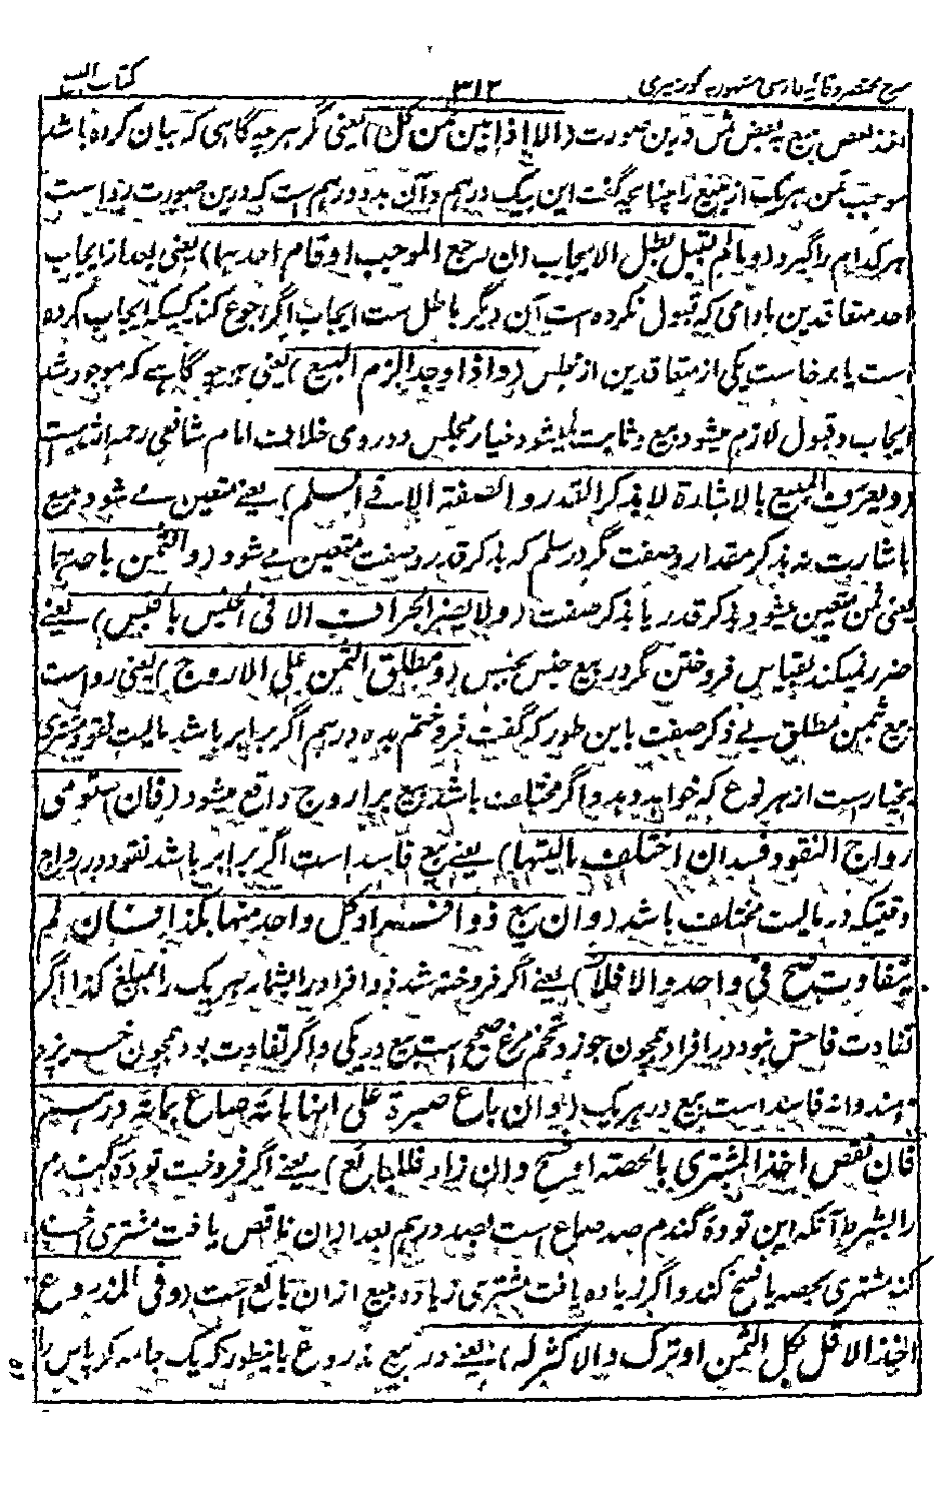 شرح مختصر وقایه فارسی مشهور به کور میری ۳۱۲ کتاب البیع
اخذ بعض مبیع به بعض ثمن درین صورت (الا اذا بین ثمن کل) یعنی گر هرچه گاهی که بیان کرده باشد
موجب ثمن هر یک از مبیع را چنانچه گفت این بیک درهم و آن بدو درهم است که درین صورت روا است
هر کدام را گیرد (و ما لم یقبل بطل الایجاب ان رجع الموجب او قام احدهما) یعنی بعد از ایجاب
احد متعاقدین مادامی که قبول نکرده است آن دیگر باطل ست ایجاب اگر رجوع کند کسیکه ایجاب کرده
است یا برخاست یکی از متعاقدین از مجلس (و اذا وجد الزم البیع) یعنی هر جو گاهے که موجود شد
ایجاب و قبول لازم میشود بیع و ثابت نمیشود خیار مجلس و دروی خلاف امام شافعی رحمه الله است
(و یعرف المبیع بالاشارة لا بذکر القدر و الصفة الا فی السلم) یعنے متعین مے شود مبیع
باشارت نه بذکر مقدار و صفت گر در سلم که بذکر قدر و صفت متعین مے شود (و الثمن باحدهما)
یعنی ثمن متعین میشود بذکر قدر یا بذکر صفت (و لا یضر الجزاف الا فی الجنس بالجنس) یعنے
ضرر نمیکند بقیاس فروختن گر در بیع جنس بجنس (و مطلق الثمن علی الاروج) یعنی رواست
بیع بثمن مطلق بے ذکر صفت باین طور که گفت فروختم بده درهم اگر برابر باشد مالیت نقود مشتری
بخیار ست از هر نوع که خواهد دهد و اگر مختلف باشد بیع بر اروج واقع میشود (فان استوی
رواج النقود فسد ان اختلف مالیتها) یعنے بیع فاسد است اگر برابر باشد نقود در رواج
وقتیکه در مالیت مختلف باشد (و ان بیع ذو افراد کل واحد منها بکذا فان لم
یتفاوت صح فی واحد و الا فلا) یعنے اگر فروخته شد ذو افراد بشمار هر یک را بمبلغ کذا اگر
تفاوت فاحش نبود در افراد همچون جوز و تخم مرغ صحیح است بیع در یکی و اگر تفاوت بود همچون خربزه
هندوانه فاسد است بیع در هر یک (و ان باع صبرة علی انها مائة صاع بمائة درهم
فان نقص اخذ المشتری بالحصة او فسخ و ان زاد فللبائع) یعنے اگر فروخت توده گندم
را بشرط آنکه این تودهٔ گندم صد صاع است بصد درهم بعد از ان ناقص یافت مشتری اخذ
کند مشتری بحصه یا فسخ کند و اگر زیاده یافت مشتری زیاده مبیع از ان بائع است (و فی المذروع
اخذ الاقل بکل الثمن او ترک و الاکثر له) یعنے در بیع مذروع باینطور که یک جامه کرپاس را